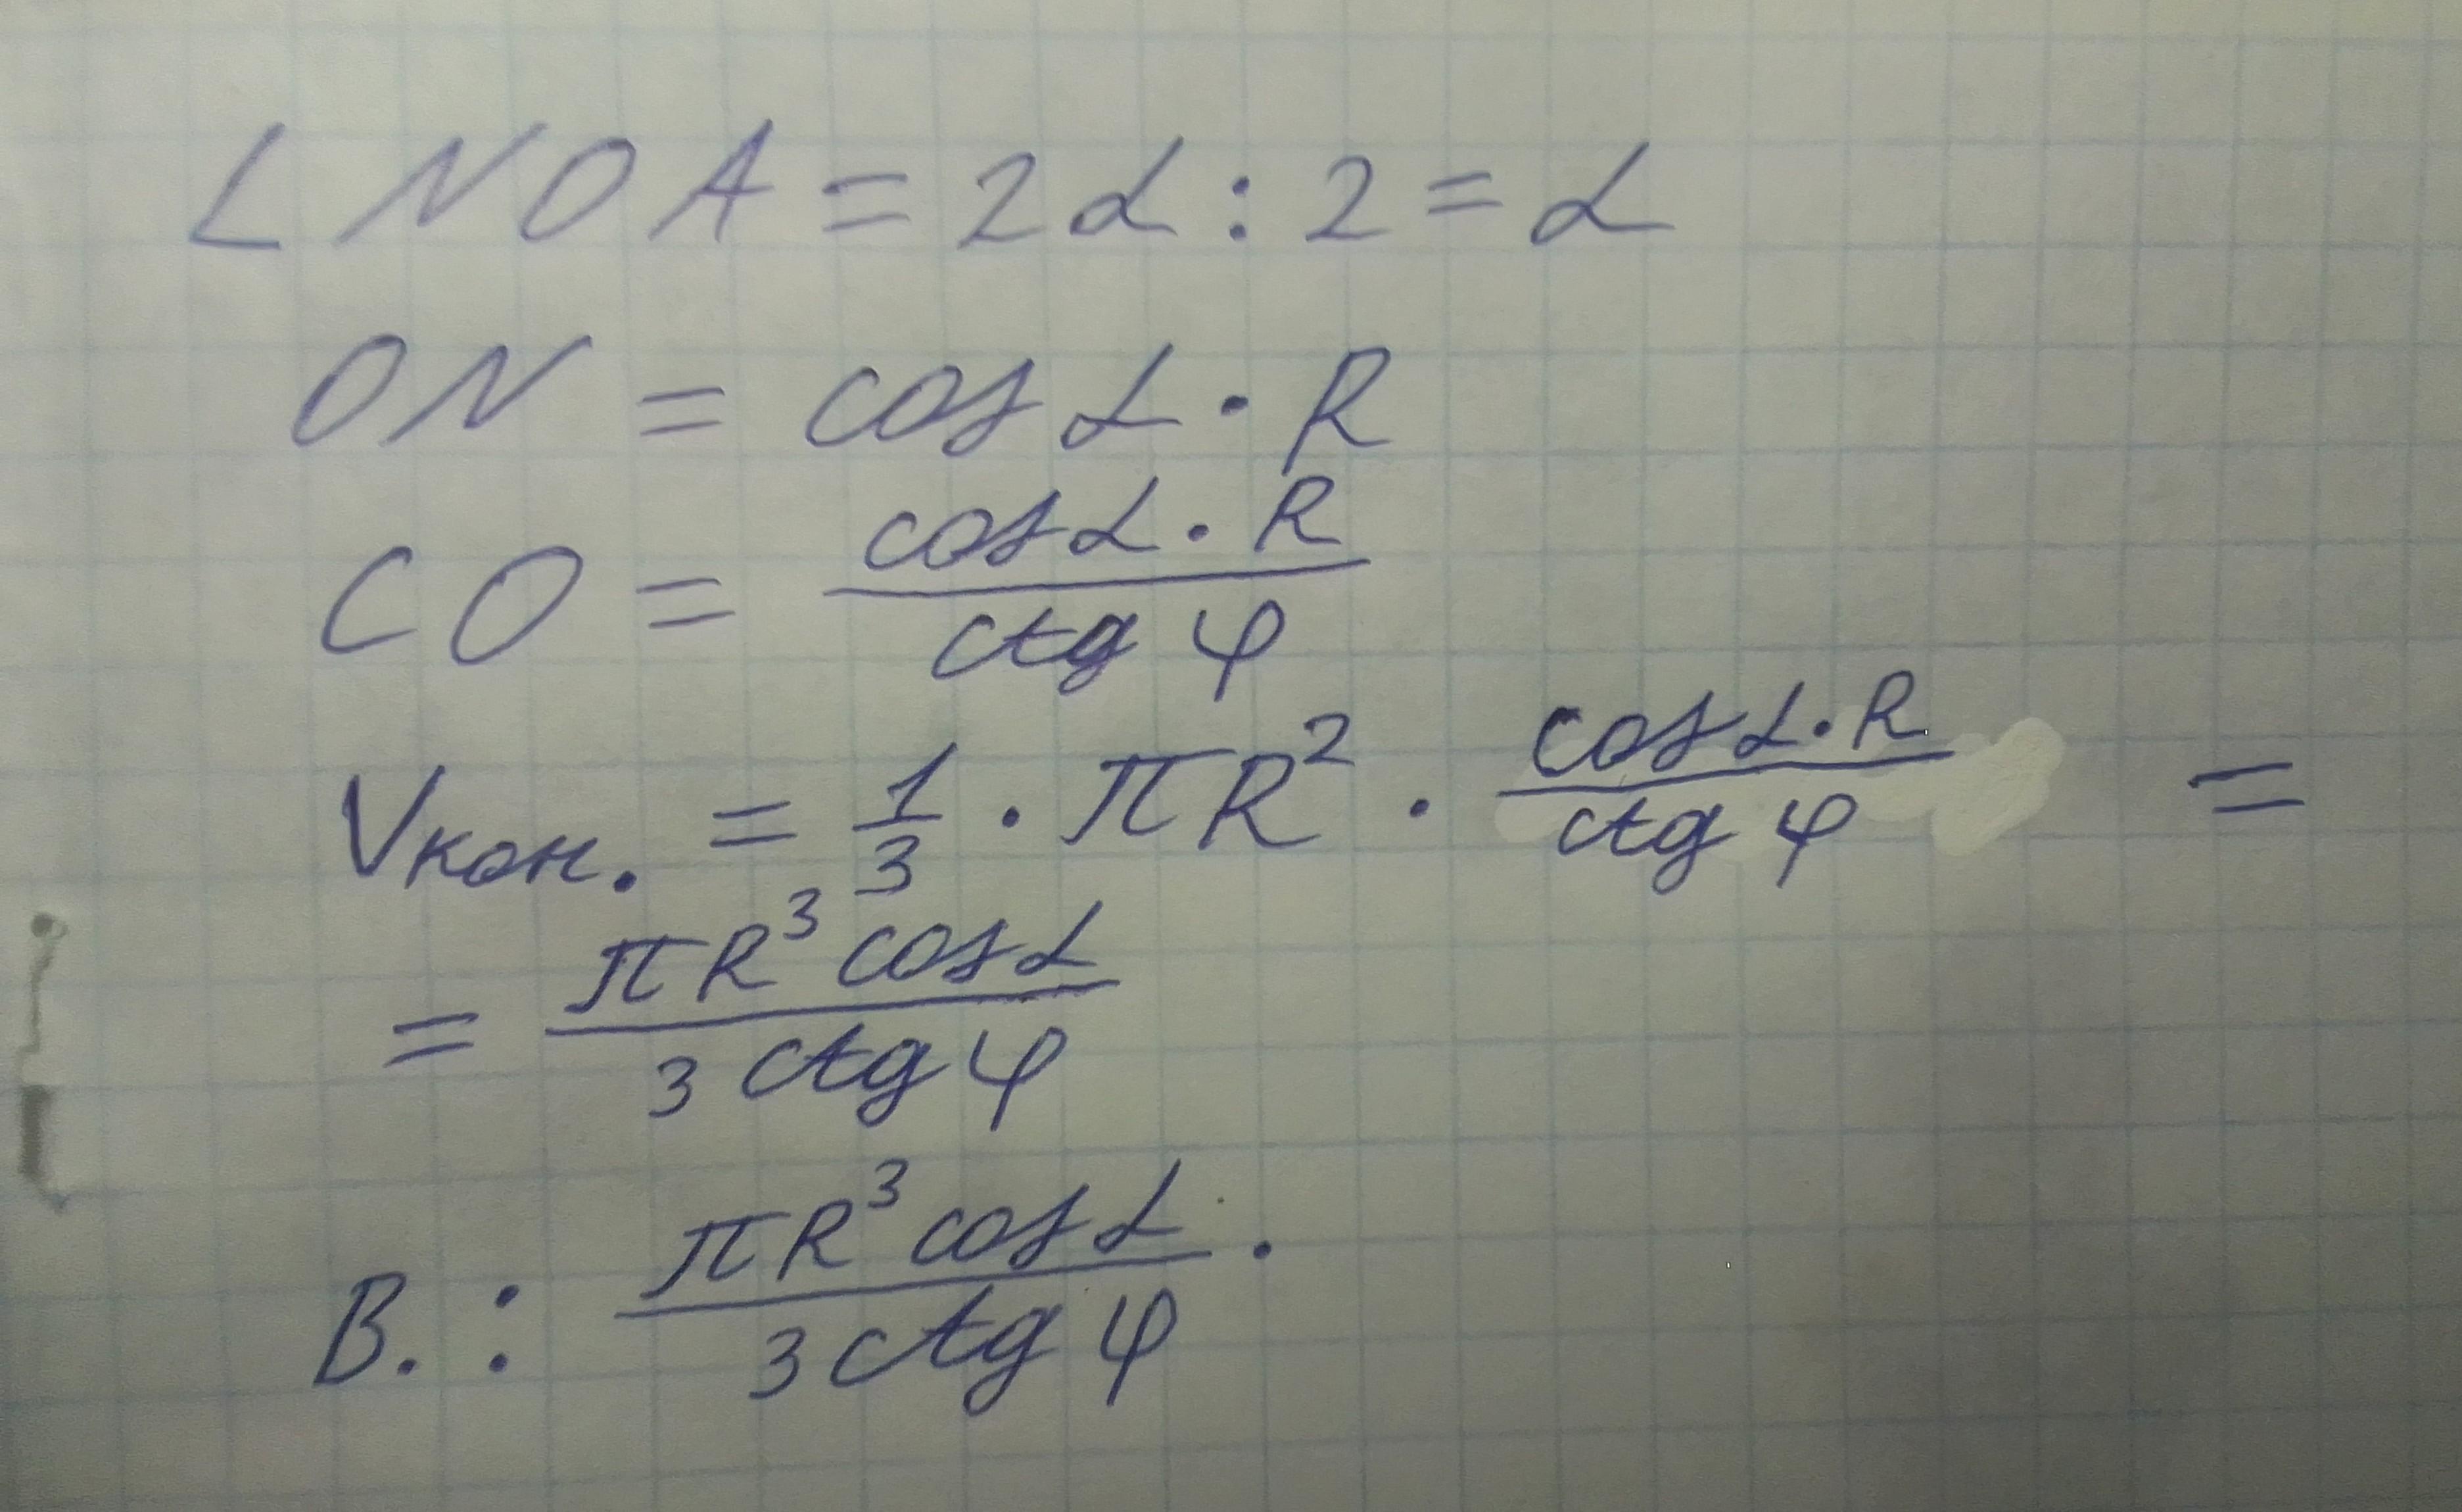 ∠NOA = 2α : 2 = α
ON = cos α · R
CO = (cos α · R) / (ctg φ)
Vкон. = 1/3 · πR² · (cos α · R) / (ctg φ) =
= (πR³ cos α) / (3 ctg φ)
В.: (πR³ cos α) / (3 ctg φ).